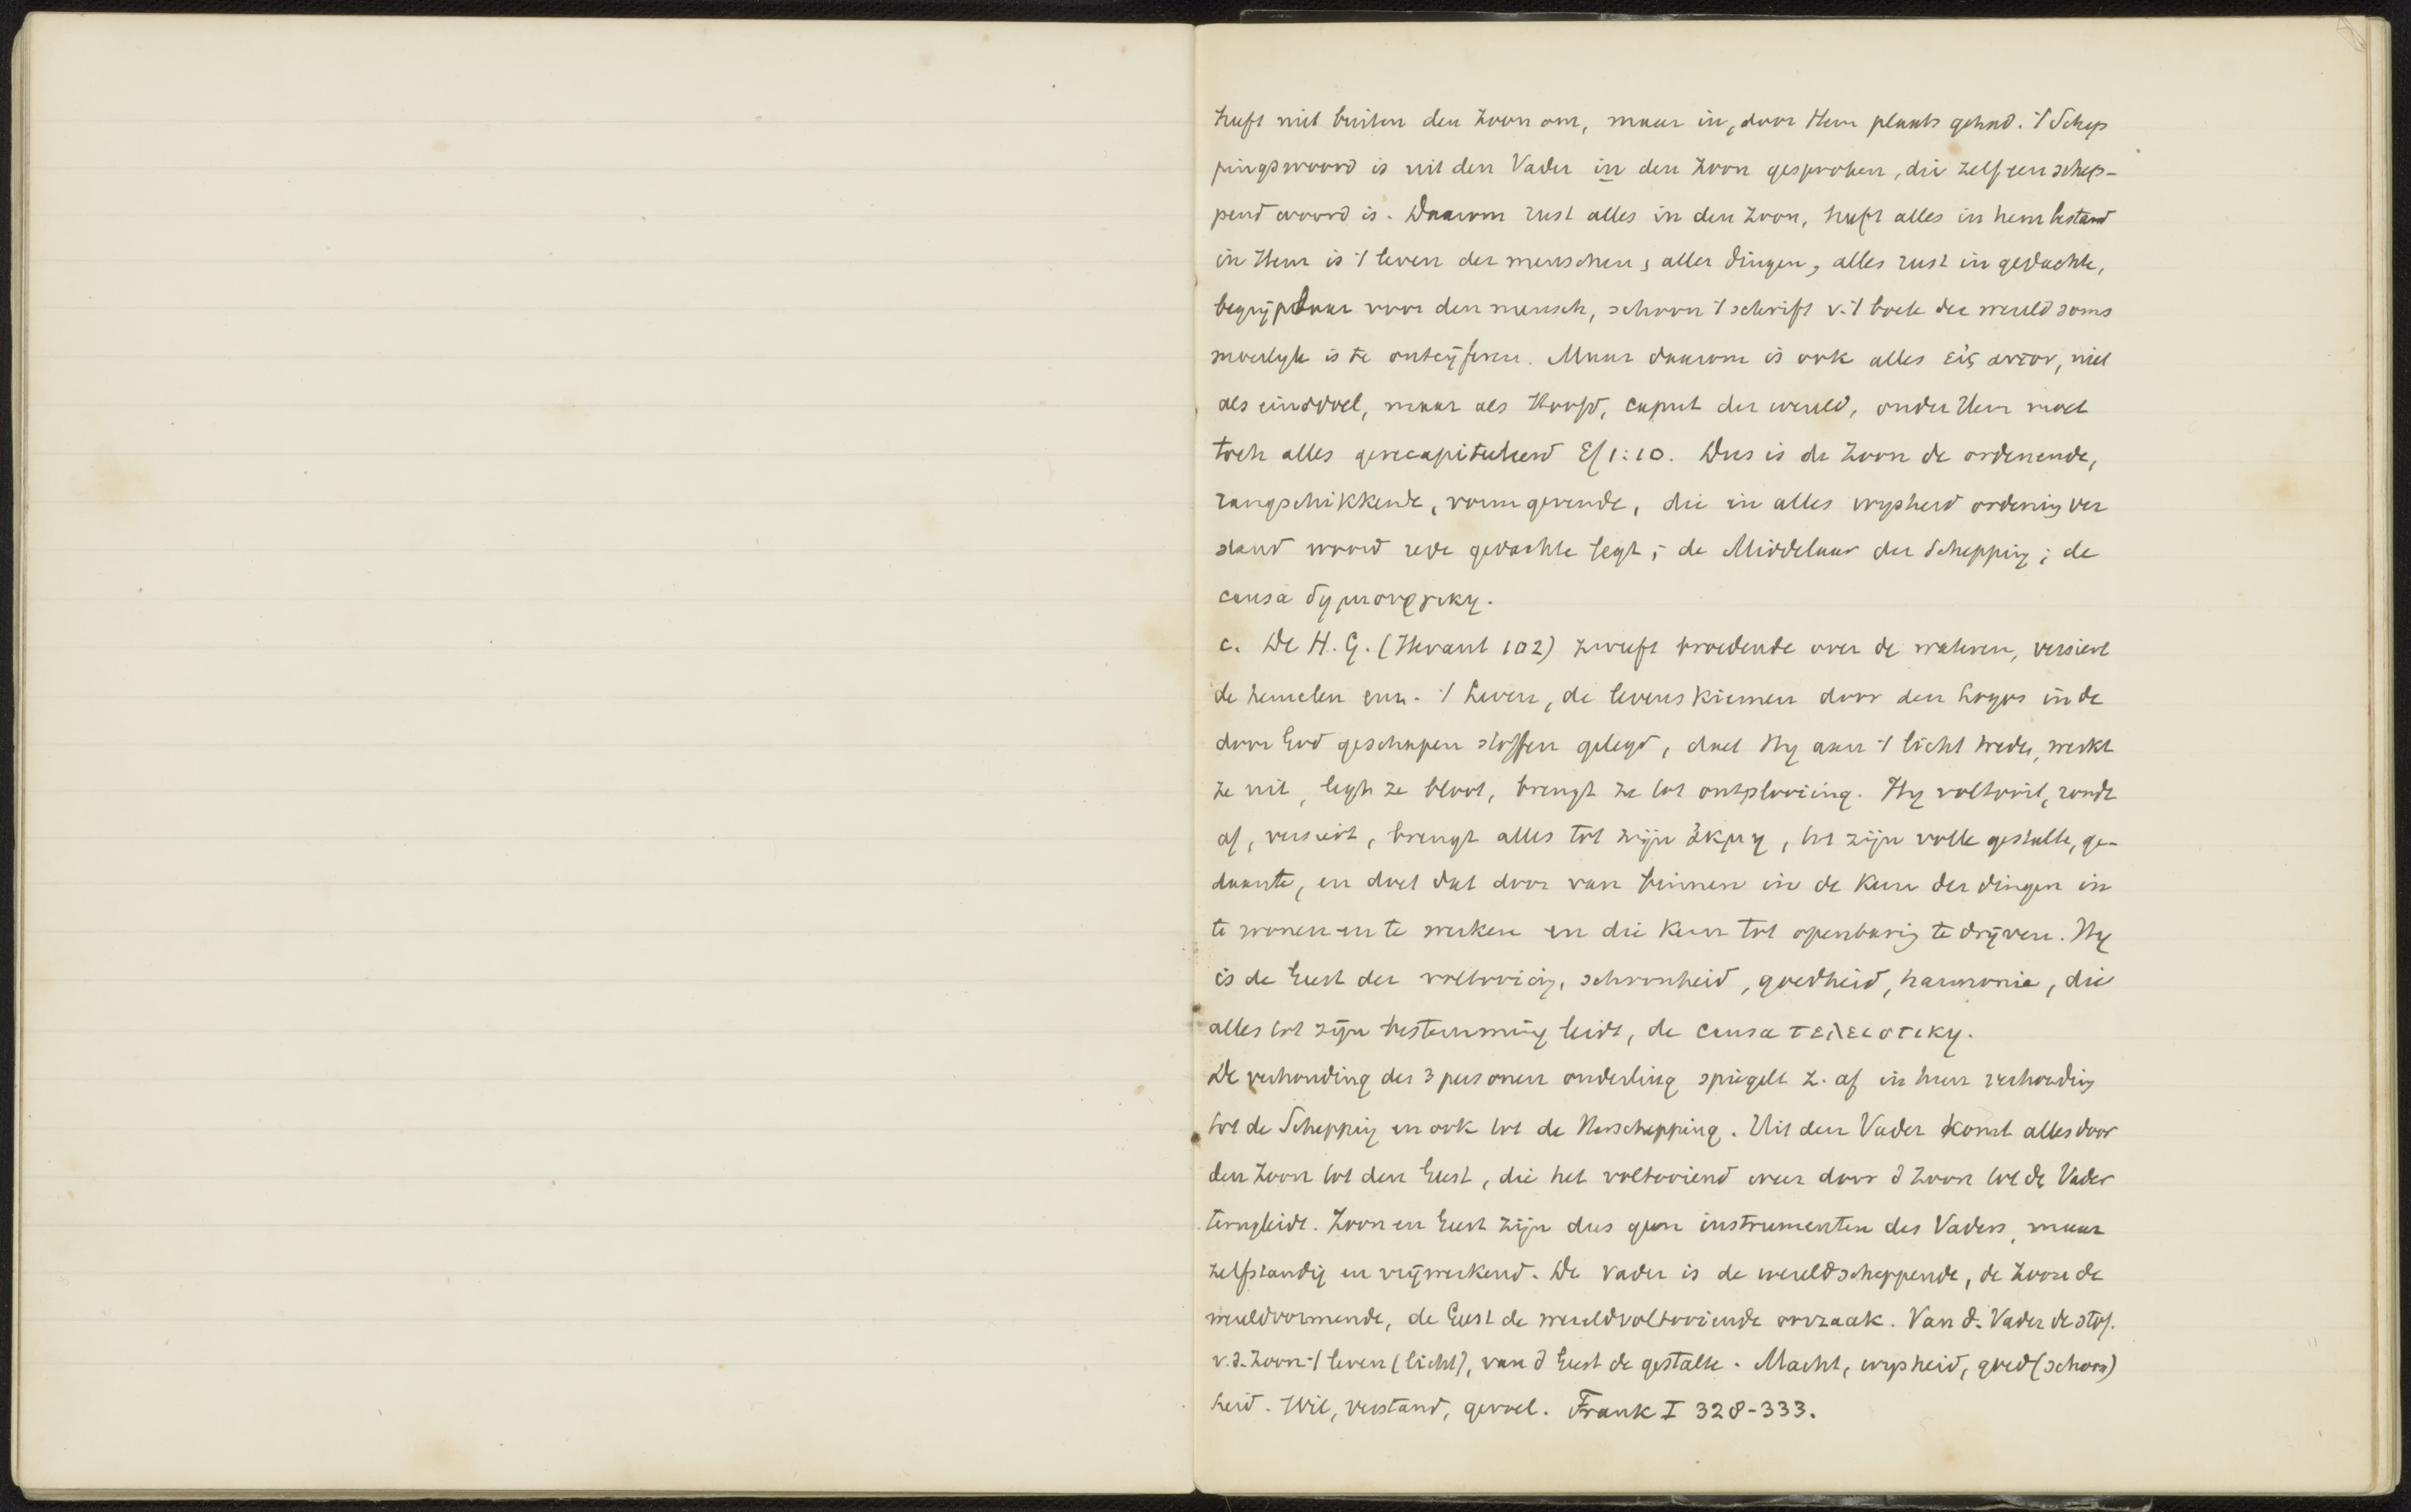 heeft niet buiten den Zoon om, maar in, door Hem plaats gehad. 't Schep
pingswoord is uit den Vader in den Zoon gesproken, die zelf een schep-
pend woord is. Daarom rust alles in den Zoon, heeft alles in hem bestand
in Hem is 't leven der menschen, aller dingen, alles rust in gedachte,
begrijpbaar voor den mensch, schoon 't schrift v. 't boek der wereld soms
moeilyk is te ontcijferen. Maar daarom is ook alles εἰς αυτον, niet
als einddoel, maar als Hoofd, caput der wereld, onder Hem moet
toch alles gerecapituleerd Ef 1:10. Dus is de Zoon de ordenende,
rangschikkende, vormgevende, die in alles wysheid ordening ver
stand woord rede gedachte legt; de Middelaar der Schepping; de
causa δημιουργικη.
c. De H. G. (Hevant 102) zweeft broedende over de wateren, versiert
de hemelen enz. 't Leven, de levenskiemen door den Logos in de
door God geschapen stoffen gelegd, doet Hy aan 't licht treden, werkt
ze uit, legt ze bloot, brengt ze tot ontplooiing. Hy voltooit, rondt
af, versiert, brengt alles tot zijn ἀκμη, tot zijn volle gestalte, ge-
daante, en doet dat door van binnen in de Kern der dingen in
te wonen en te werken en die Kern tot openbaring te drijven. Hy
is de Geest der voltooiing, schoonheid, goedheid, harmonie, die
alles tot zijn bestemming leidt, de causa τελειοτικη.
De verhouding der 3 personen onderling spiegelt z. af in hun verhouding
tot de Schepping en ook tot de Herschepping. Uit den Vader komt alles door
den Zoon tot den Geest, die het voltooiend weer door d Zoon tot de Vader
terugleidt. Zoon en Geest zijn dus geen instrumenten des Vaders, maar
zelfstandig en vrijwerkend. De Vader is de wereldscheppende, de Zoon de
wereldvormende, de Geest de wereldvoltooiende oorzaak. Van d. Vader de stof.
v. d. Zoon 't leven (licht), van d Geest de gestalte. Macht, wysheid, goed (schoon)
heid. Wil, verstand, gevoel. Frank I 328-333.